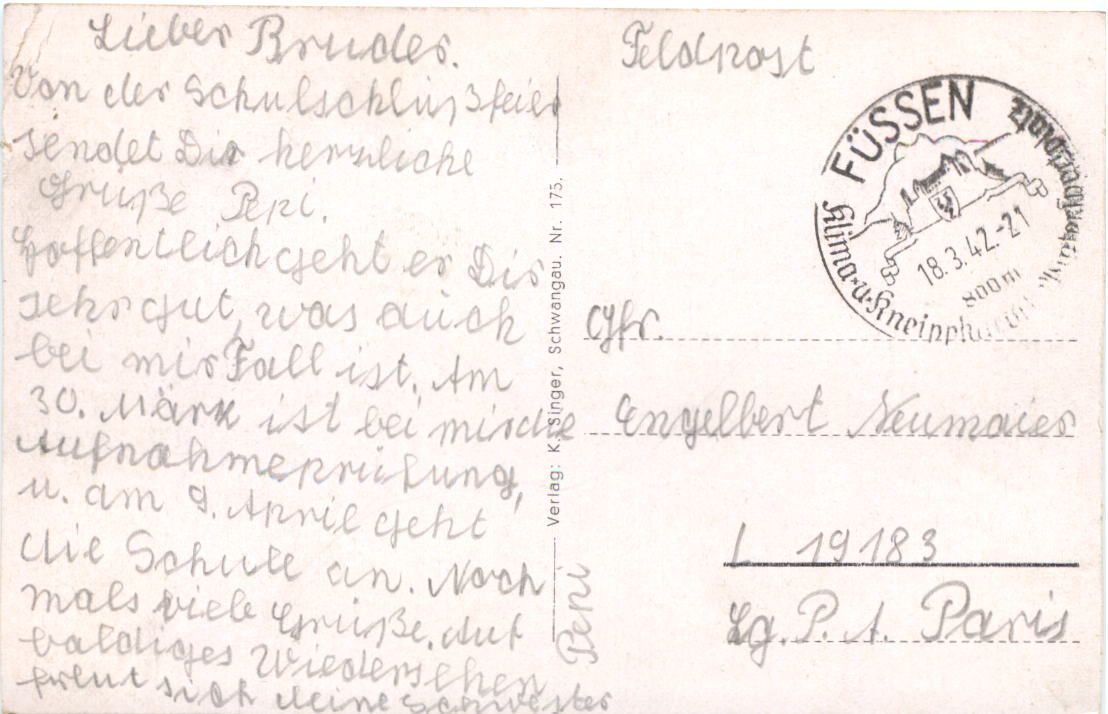 Lieber Bruder.
Von der Schulschlußfeier
sendet Dir herzliche
Grüße Pepi.
Hoffentlich geht es Dir
sehr gut, was auch
bei mir Fall ist. Am
30. März ist bei mir die
Aufnahmeprüfung,
u. am 9. April geht
die Schule an. Noch
mals viele Grüße. Auf
baldiges Wiedersehen
freut sich deine Schwester
Pepi
Verlag: K. Singer, Schwangau. Nr. 175.
Feldpost
FÜSSEN
18.3.42.-21
800m
Klima-u.Kneippkurort
Gfr.
Engelbert Neumaier
L 19183
Lg. P. A. Paris